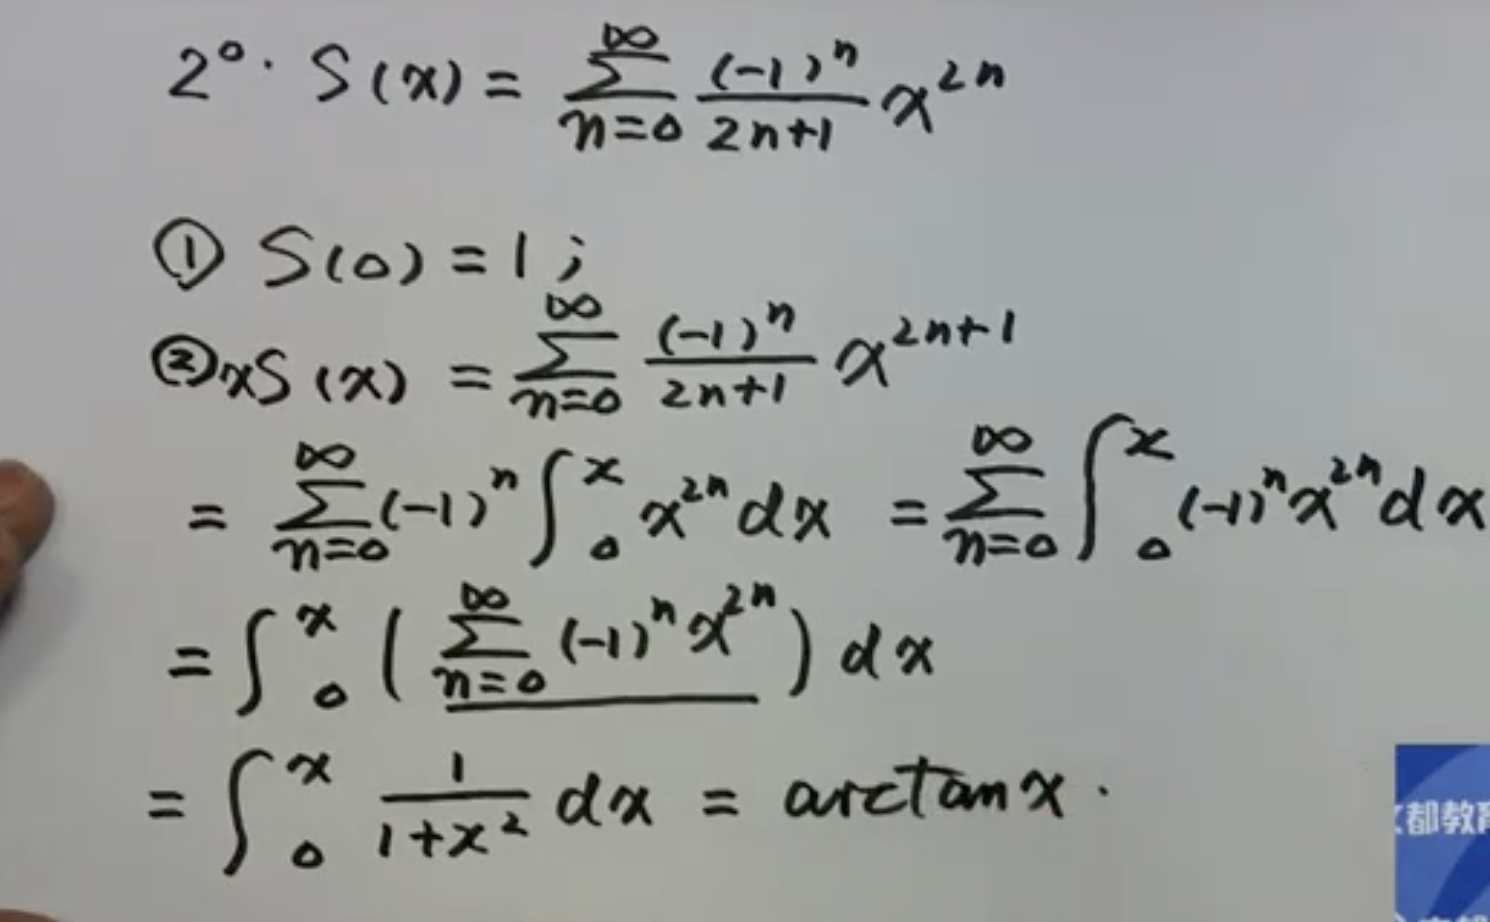 2°. S(x) = ∑_{n=0}^{∞} \frac{(-1)^n}{2n+1} x^{2n}
① S(0) = 1;
② xS(x) = ∑_{n=0}^{∞} \frac{(-1)^n}{2n+1} x^{2n+1}
= ∑_{n=0}^{∞} (-1)^n ∫_0^x x^{2n} dx = ∑_{n=0}^{∞} ∫_0^x (-1)^n x^{2n} dx
= ∫_0^x ( ∑_{n=0}^{∞} (-1)^n x^{2n} ) dx
= ∫_0^x \frac{1}{1+x^2} dx = arctan x.
都教育